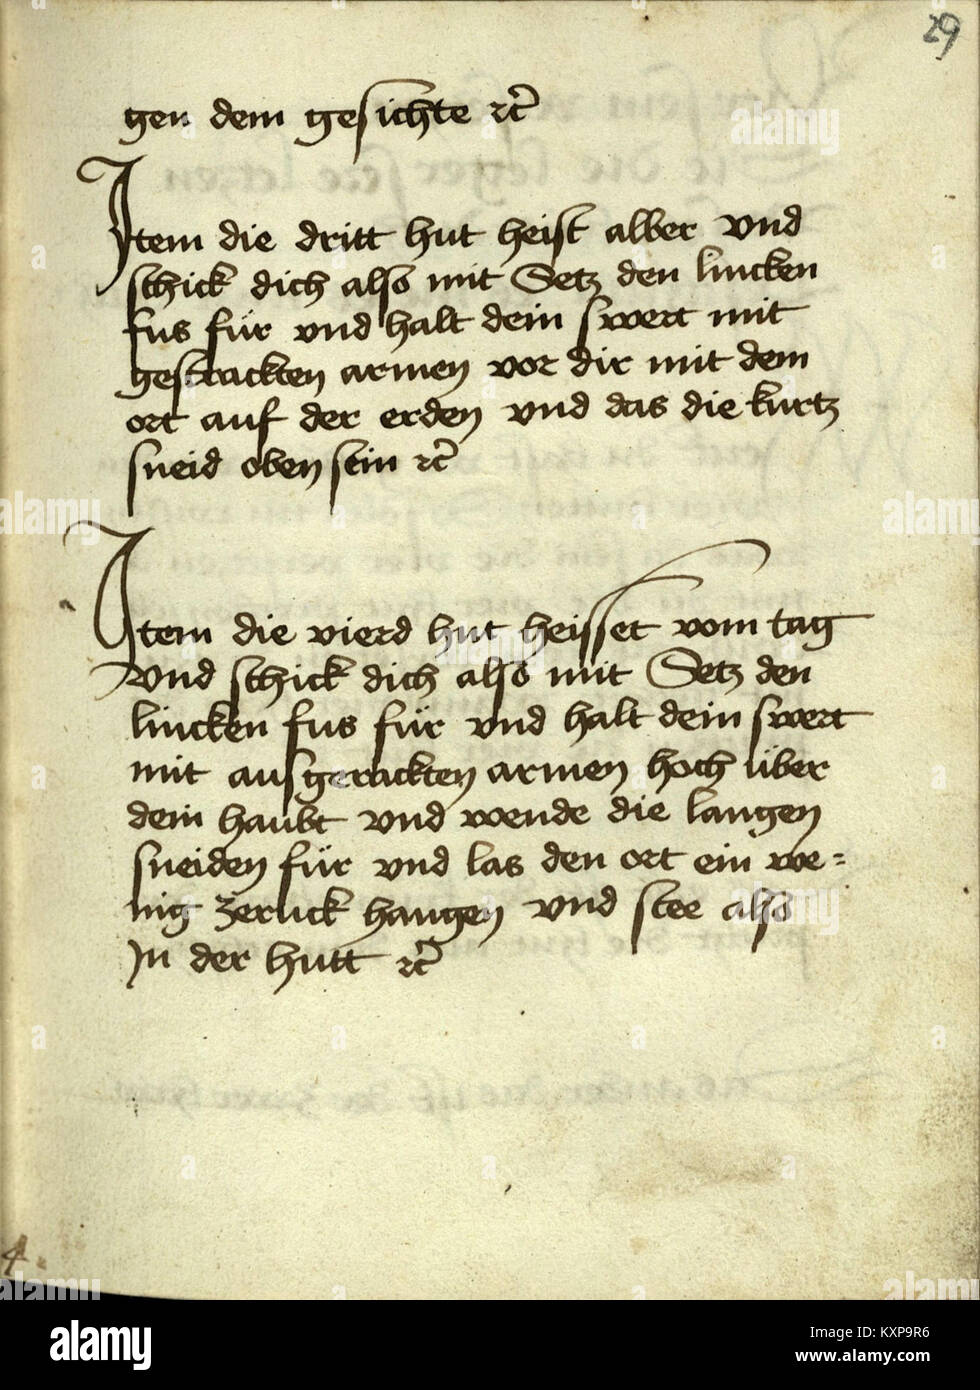 29
gen dem gesichte ⁊c̃
Item die dritt hut heist alber vnd
schick dich also mit Setz den lincken
fus für vnd halt dein swert mit
gestrackten armen vor dir mit dem
ort auf der erden vnd das die kurtz
sneid oben sein ⁊c̃
Item die vierd hut heisset vom tag
vnd schick dich also mit Setz den
lincken fus für vnd halt dein swert
mit ausgerackten armen hoch über
dein haubt vnd wende die langen
sneiden für vnd las den ort ein we=
nig zeruck hangen vnd stee also
In der hutt ⁊c̃
4
alamy
Image ID: KXP9R6
www.alamy.com